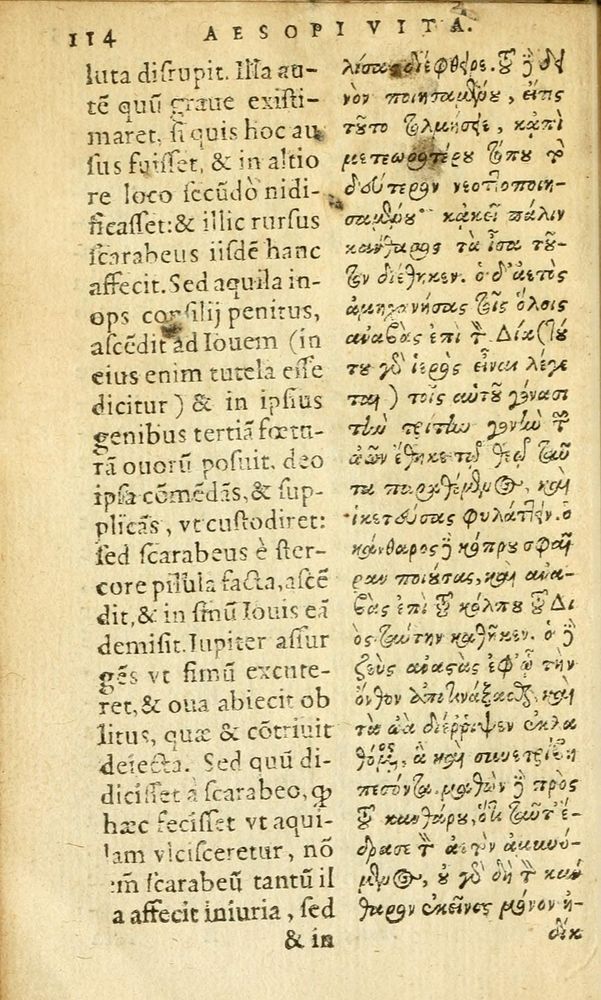 114 AESOPI VITA.
luta disrupit. Illa au-
tē quū graue existi-
maret, si quis hoc au
sus fuisset, & in altio
re loco secūdò nidi-
ficasset: & illic rursus
scarabeus iisdē hanc
affecit. Sed aquila in-
ops consilij penitus,
ascēdit ad Iouem (in
eius enim tutela esse
dicitur) & in ipsius
genibus tertiā fœtu-
rā ouorū posuit, deo
ipsa cōmēdās, & sup-
plicās, vt custodiret:
sed scarabeus è ster-
core pilula facta, ascē
dit, & in sinū Iouis eā
demisit. Iupiter assur
gēs vt fimū excute-
ret, & oua abiecit ob
litus, quæ & cōtriuit
deiecta. Sed quū di-
dicisset à scarabeo, ꝙ
hæc fecisset vt aqui-
lam vlcisceretur, nō
em̄ scarabeū tantū il
a affecit iniuria, sed
& in
λίσας διέφθειρε. τοῦ δὲ
νὸν ποιησαμένου, εἴτις
τοῦτο τολμήσειε, κἀπὶ
μετεωροτέρου τόπου τὸ
δεύτερον νεοττοποιη-
σαμένου κἀκεῖ πάλιν
κάνθαρος τὰ ἶσα τοῦ-
τον διέθηκεν. ὁ δ' ἀετὸς
ἀμηχανήσας τοῖς ὅλοις
ἀναβὰς ἐπὶ τὸν Δία (τού
του γὰρ ἱερὸς εἶναι λέγε
ται) τοῖς αὐτοῦ γόνασι
τὴν τρίτην γονὴν τῶν
ὠῶν ἔθηκε τῷ θεῷ ταῦ
τα παραθέμενος, καὶ
ἱκετεύσας φυλάττειν. ὁ
κάνθαρος δὲ κόπρου σφαῖ
ραν ποιήσας, καὶ ἀνα-
βὰς ἐπὶ τοῦ κόλπου τοῦ Δι
ὸς ταύτην καθῆκεν. ὁ δὲ
ζεὺς ἀναστὰς ἐφ' ᾧ τὴν
ὄνθον ἀποτινάξασθαι, καὶ
τὰ ὠὰ διέρριψεν ἐκλα
θόμενος, ἃ καὶ συνετρίβη
πεσόντα. μαθὼν δὲ πρὸς
τοῦ κανθάρου, ὅτι ταῦτ' ἔ-
δρασε τὸν ἀετὸν ἀμυνό-
μενος, οὐ γὰρ δὴ τὸν κάν
θαρον ἐκεῖνος μόνον ἠ-
δίκ